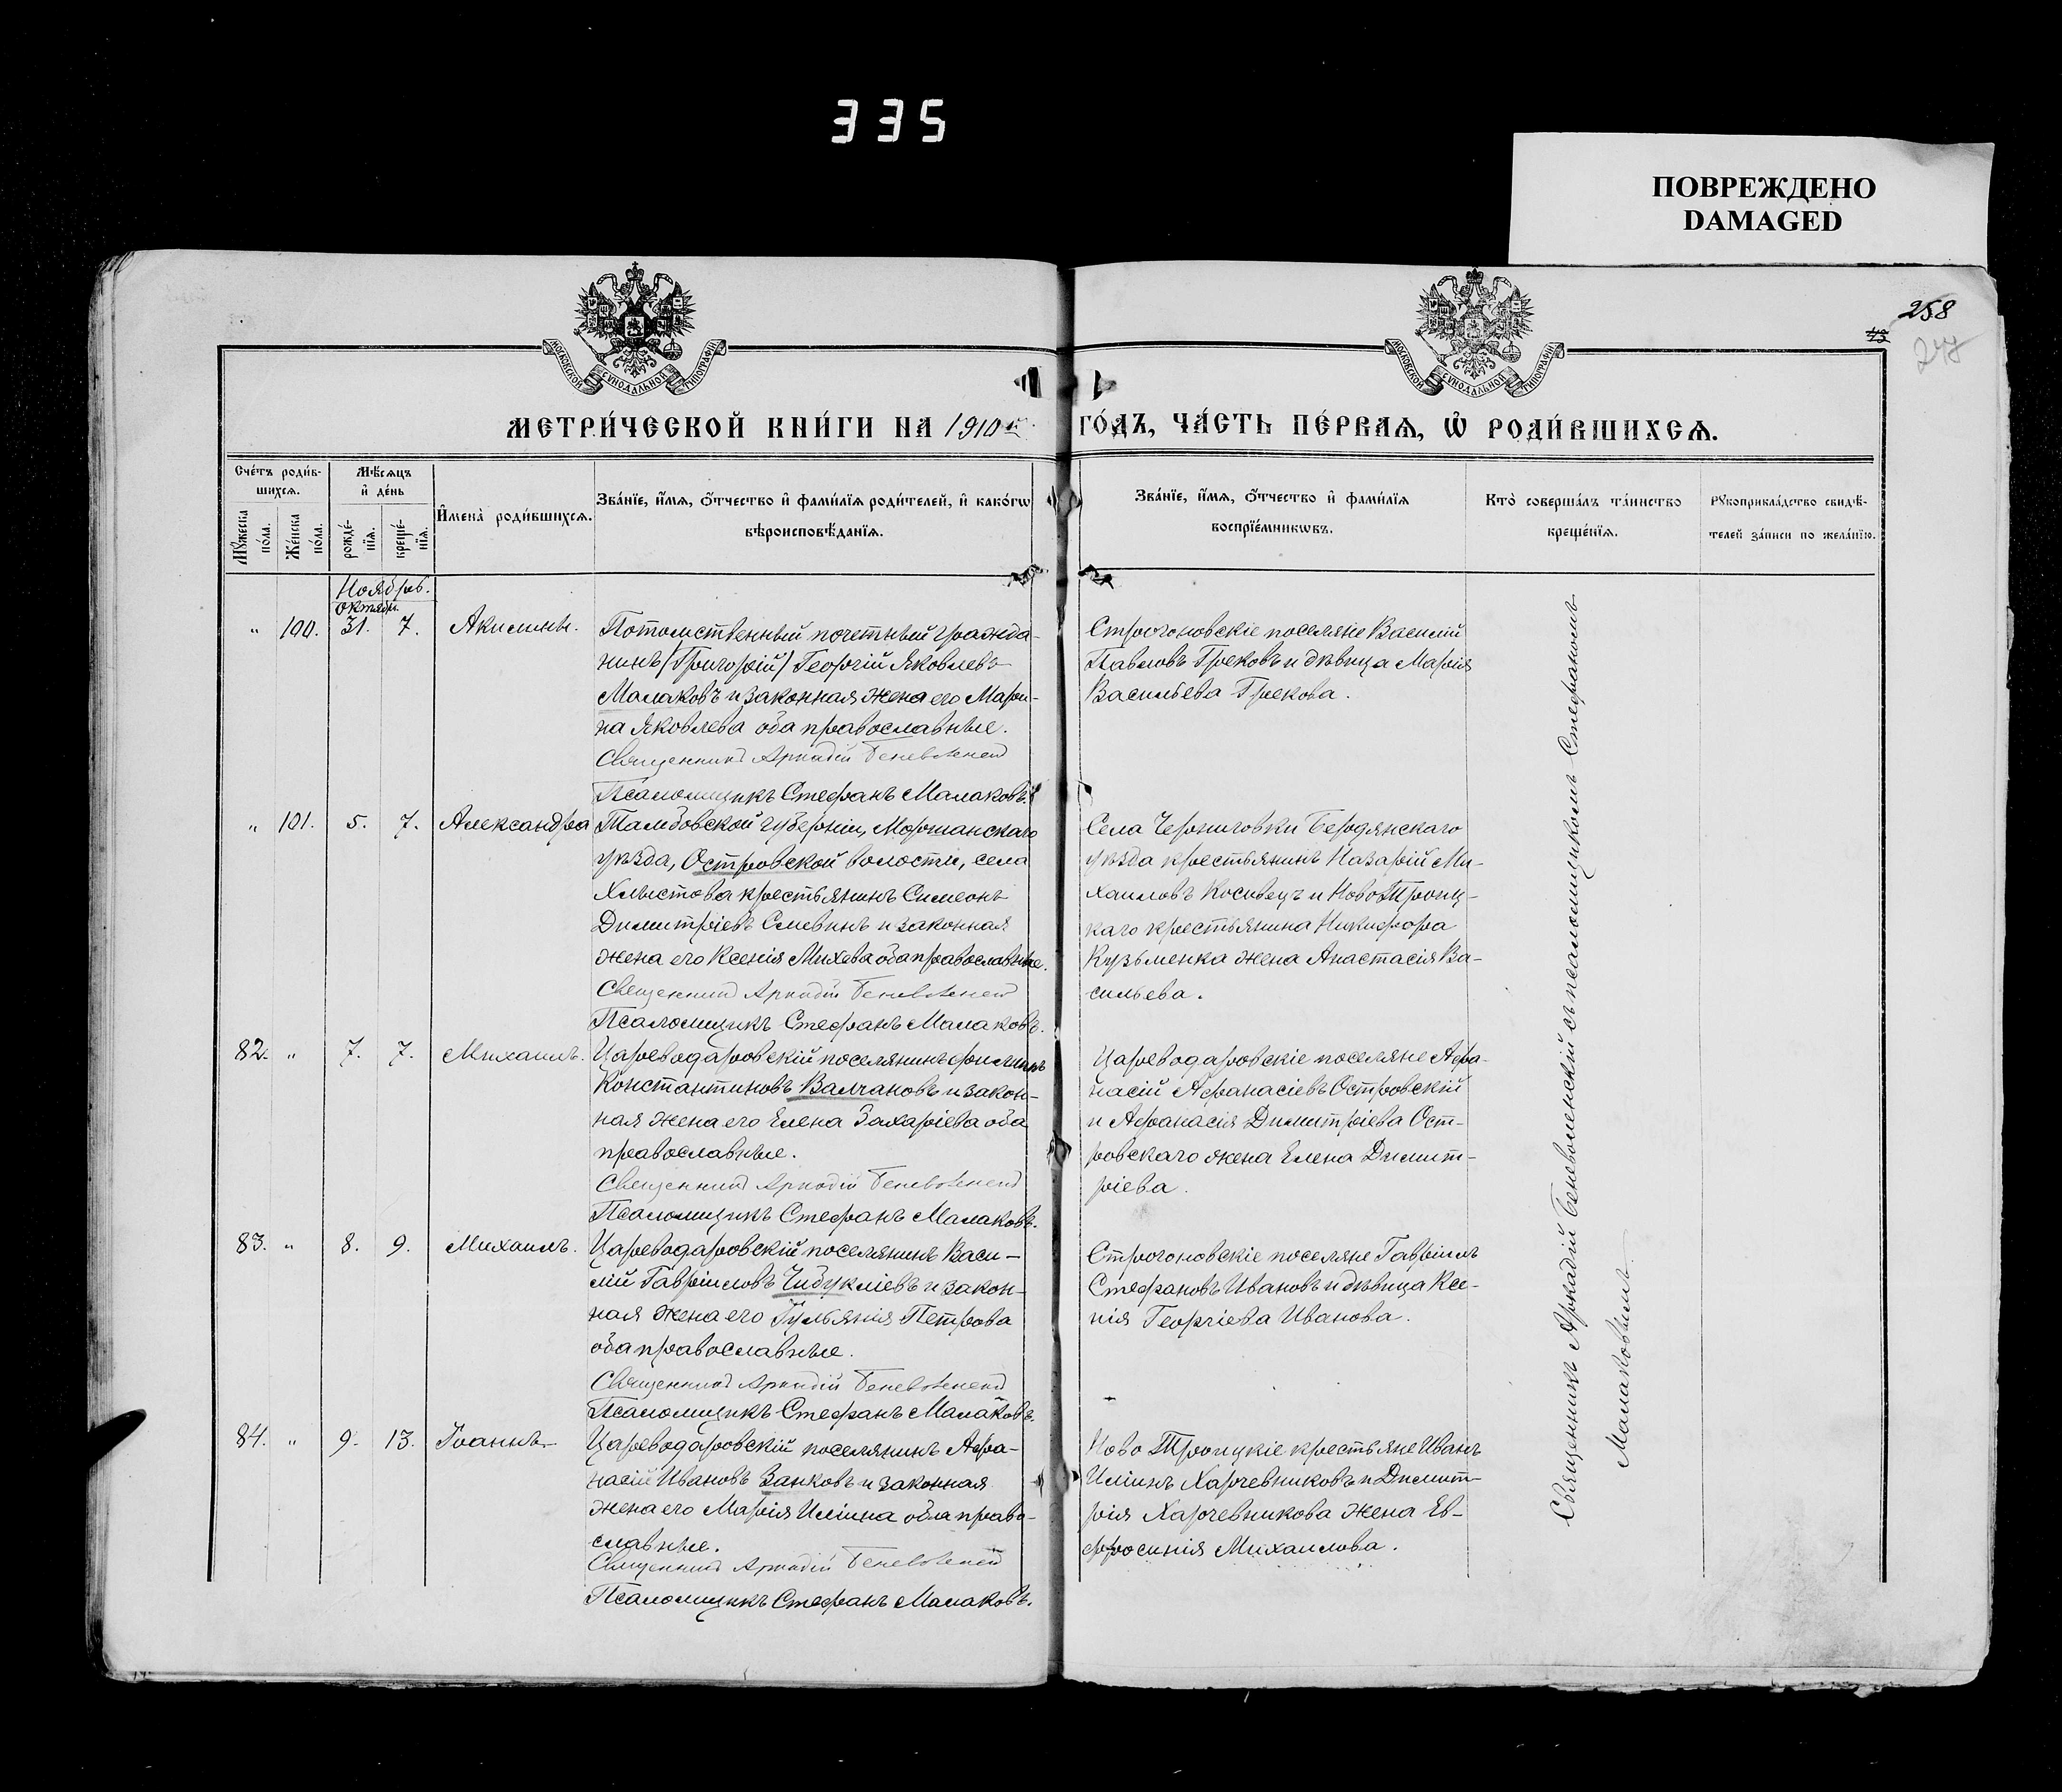 335
ПОВРЕЖДЕНО
DAMAGED
258
МОСКОВСКОЙ СѴНОДАЛЬНОЙ ТИПОГРАФІИ
МОСКОВСКОЙ СѴНОДАЛЬНОЙ ТИПОГРАФІИ
МЕТРИ́ЧЕСКОЙ КНИ́ГИ НА 1910 ГО́ДЪ, ЧА́СТЬ ПЕ́РВАѦ, Ѡ҆ РОДИ́ВШИХСѦ.
Сче́тъ роди́в-
шихсѧ.
Мꙋ́жеска по́ла.
Же́нска по́ла.
Мѣ́сѧцъ
и҆ де́нь
рожде́-
нїѧ.
креще́-
нїѧ.
И҆мена̀ роди́вшихсѧ.
Зва́нїе, и҆́мѧ, ѻ҆́тчество и҆ фами́лїѧ роди́телей, и҆ како́гѡ
вѣроисповѣ́данїѧ.
Зва́нїе, и҆́мѧ, ѻ҆́тчество и҆ фами́лїѧ
воспрїе́мникѡвъ.
Кто̀ соверша́лъ та́инство
креще́нїѧ.
Рꙋкоприкла́дство свидѣ́-
телей за́писи по жела́нїю.
Ноябрь.
Октября
" 100. 31. 7. Акилина.
Потомственный почетный гражда-
нинъ (Григорій) Георгій Яковлевъ
Малаковъ и законная жена его Мари-
на Яковлева оба православные.
Священникъ Аркадій Беневоленскій
Псаломщикъ Стефанъ Малаковъ.
Строгоновскіе поселяне Василій
Павловъ Грековъ и дѣвица Марія
Васильева Грекова.
" 101. 5. 7. Александра
Тамбовской губерніи, Моршанскаго
уѣзда, Островской волости, села
Хлыстова крестьянинъ Симеонъ
Димитріевъ Слевинъ и законная
жена его Ксенія Михева оба православные.
Священникъ Аркадій Беневоленскій
Псаломщикъ Стефанъ Малаковъ.
Села Черниговки Бердянскаго
уѣзда крестьянинъ Назарій Ми-
хаиловъ Косивецъ и Ново Троиц-
каго крестьянина Никифора
Кузьменка жена Анастасія Ва-
сильева.
82. " 7. 7. Михаилъ.
Цареводаровскій поселянинъ Филиппъ
Константиновъ Валчановъ и закон-
ная жена его Елена Захаріева оба
православные.
Священникъ Аркадій Беневоленскій
Псаломщикъ Стефанъ Малаковъ.
Цареводаровскіе поселяне Афа-
насій Афанасіевъ Островскій
и Афанасія Димитріева Ост-
ровскаго жена Елена Димит-
ріева.
83. " 8. 9. Михаилъ.
Цареводаровскій поселянинъ Васи-
лій Гавріиловъ Чибукліевъ и закон-
ная жена его Гульянія Петрова
оба православные.
Священникъ Аркадій Беневоленскій
Псаломщикъ Стефанъ Малаковъ.
Строгоновскіе поселяне Гавріилъ
Стефановъ Ивановъ и дѣвица Ксе-
нія Георгіева Иванова.
84. " 9. 13. Іоаннъ.
Цареводаровскій поселянинъ Афа-
насій Ивановъ Занковъ и законная
жена его Марія Иліина оба право-
славные.
Священникъ Аркадій Беневоленскій
Псаломщикъ Стефанъ Малаковъ.
Ново Троицкіе крестьяне Иванъ
Иліинъ Харчевниковъ и Димит-
рія Харчевникова жена Ев-
фросинія Михаилова.
Священникъ Аркадій Беневоленскій съ псаломщикомъ Стефаномъ
Малаковымъ.